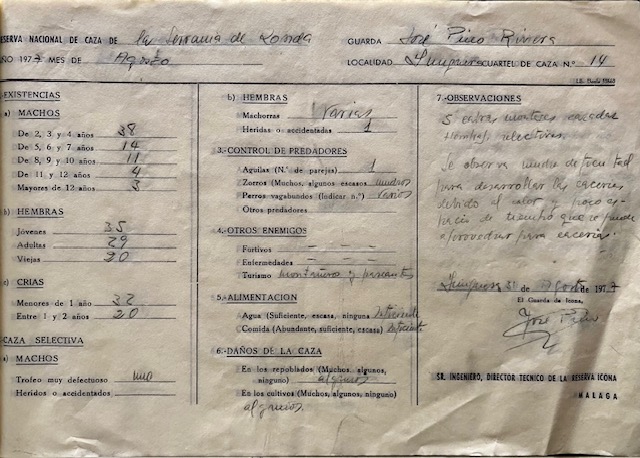 RESERVA NACIONAL DE CAZA DE la Serrania de Ronda
AÑO 1977 MES DE Agosto
GUARDA José Pino Rivera
LOCALIDAD CUARTEL DE CAZA N.º 14
EXISTENCIAS
a) MACHOS
De 2, 3 y 4 años 38
De 5, 6 y 7 años 14
De 8, 9 y 10 años 11
De 11 y 12 años 4
Mayores de 12 años 3
b) HEMBRAS
Jóvenes 35
Adultas 29
Viejas 20
c) CRIAS
Menores de 1 año 32
Entre 1 y 2 años 20
CAZA SELECTIVA
a) MACHOS
Trofeo muy defectuoso uno
Heridos o accidentados
b) HEMBRAS
Machorras Varias
Heridas o accidentadas 1
3.-CONTROL DE PREDADORES
Aguilas (N.º de parejas) 1
Zorros (Muchos, algunos escasos muchos
Perros vagabundos (Indicar n.º) varios
Otros predadores
4.-OTROS ENEMIGOS
Furtivos – – –
Enfermedades – – –
Turismo montañeros y paseantes
5.-ALIMENTACION
Agua (Suficiente, escasa, ninguna suficiente
Comida (Abundante, suficiente, escasa) suficiente
6.-DAÑOS DE LA CAZA
En los repoblados (Muchos, algunos,
ninguno) algunos
En los cultivos (Muchos, algunos, ninguno)
algunos.
7.-OBSERVACIONES
5 cabras monteses cazadas
Hembras selectivas.
Se observa mucha dificultad
para desarrollar las cacerias
debido al calor y poco es-
pacio de tiempo que se puede
aprovechar para cacerias.
31 de Agosto de 1977
El Guarda de Icona,
José Pino
SR. INGENIERO, DIRECTOR TECNICO DE LA RESERVA ICONA
MALAGA